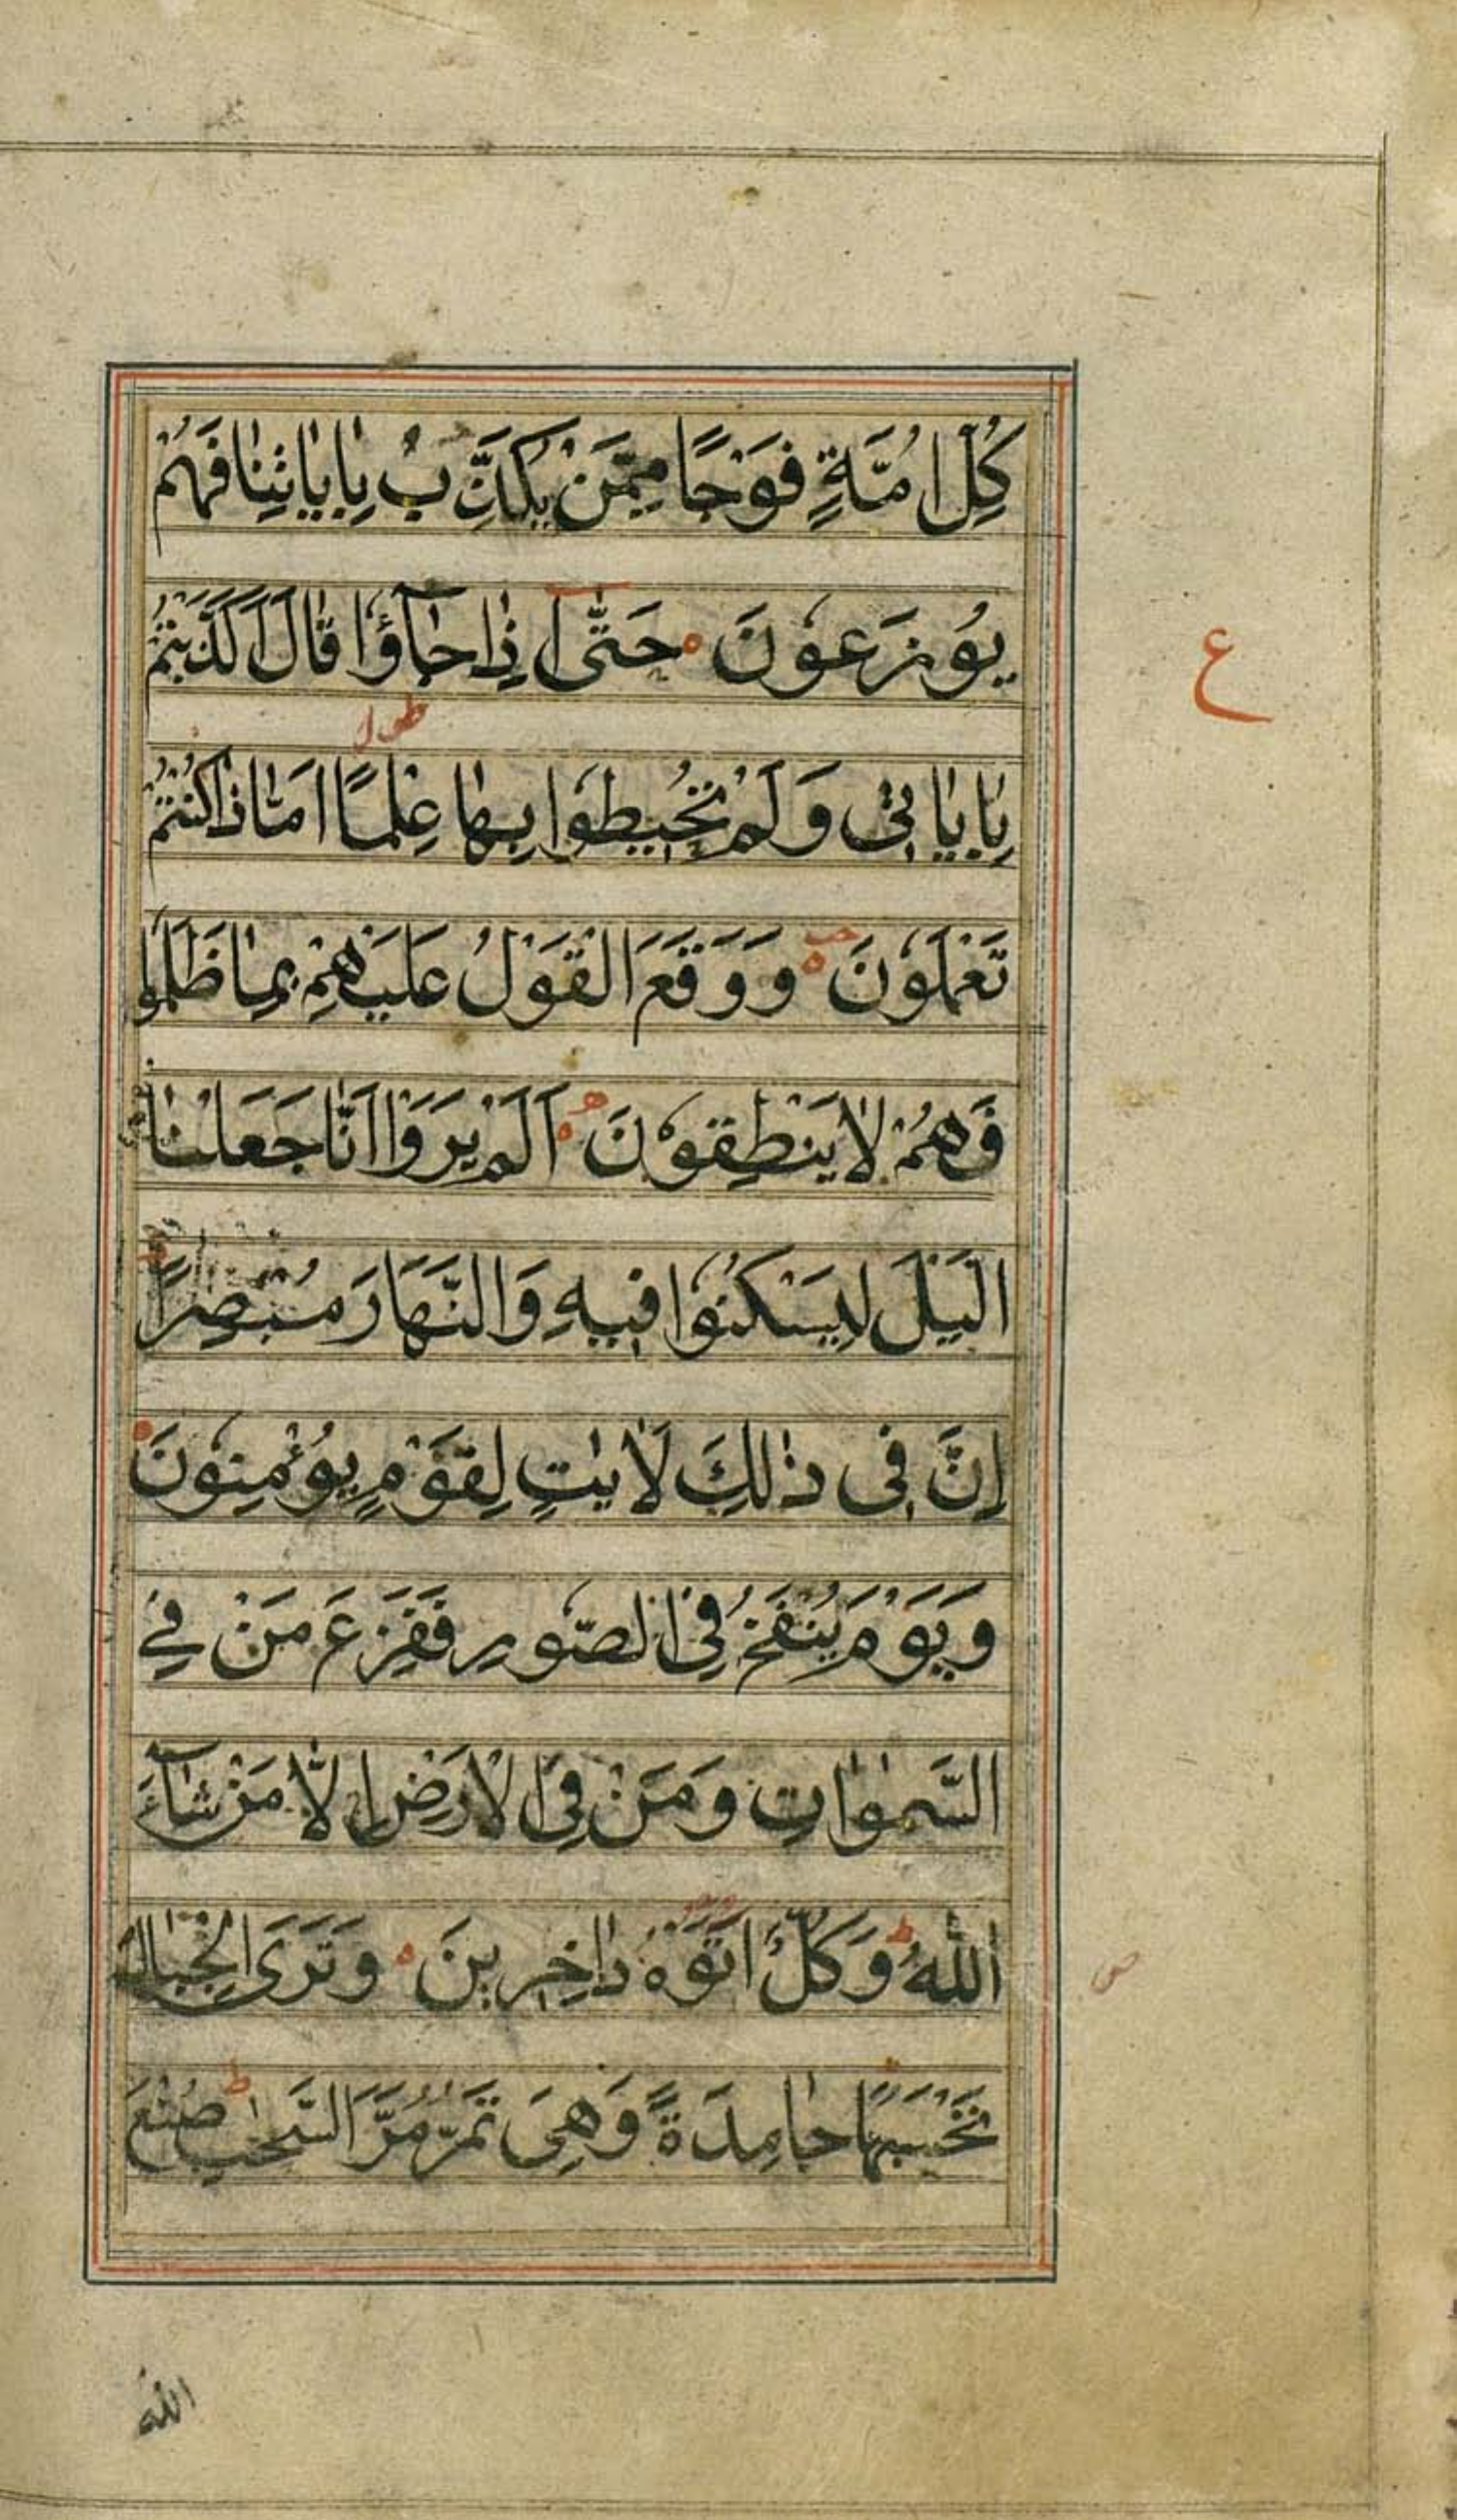 كُلِّ اُمَّةٍ فَوْجًا مِمَّنْ يُكَذِّبُ بِاٰيٰاتِنٰا فَهُمْ
يُوزَعُونَ حَتّٰى اِذٰا جٰآؤُا قٰالَ اَكَذَّبْتُمْ
ع
طول
بِاٰيٰاتِى وَلَمْ تُحِيطُوا بِهٰا عِلْمًا اَمّٰا ذٰا كُنْتُمْ
تَعْمَلُونَ وَوَقَعَ الْقَوْلُ عَلَيْهِمْ بِمٰا ظَلَمُوا
فَهُمْ لٰا يَنْطِقُونَ اَلَمْ يَرَوْا اَنّٰا جَعَلْنٰا
الَّيْلَ لِيَسْكُنُوا فِيهِ وَالنَّهَارَ مُبْصِرًا
اِنَّ فِى ذٰلِكَ لَاٰيٰتٍ لِقَوْمٍ يُؤْمِنُونَ
وَيَوْمَ يُنْفَخُ فِى الصُّورِ فَفَزِعَ مَنْ فِى
السَّمٰوٰاتِ وَمَنْ فِى الْاَرْضِ اِلّٰا مَنْ شٰآءَ
اللّٰهُ ط وَكُلٌّ اَتَوْهُ دٰاخِرِينَ وَتَرَى الْجِبٰالَ
ص
تَحْسَبُهٰا جٰامِدَةً وَهِىَ تَمُرُّ مَرَّ السَّحٰبِ ط صُنْعَ
اللّٰه